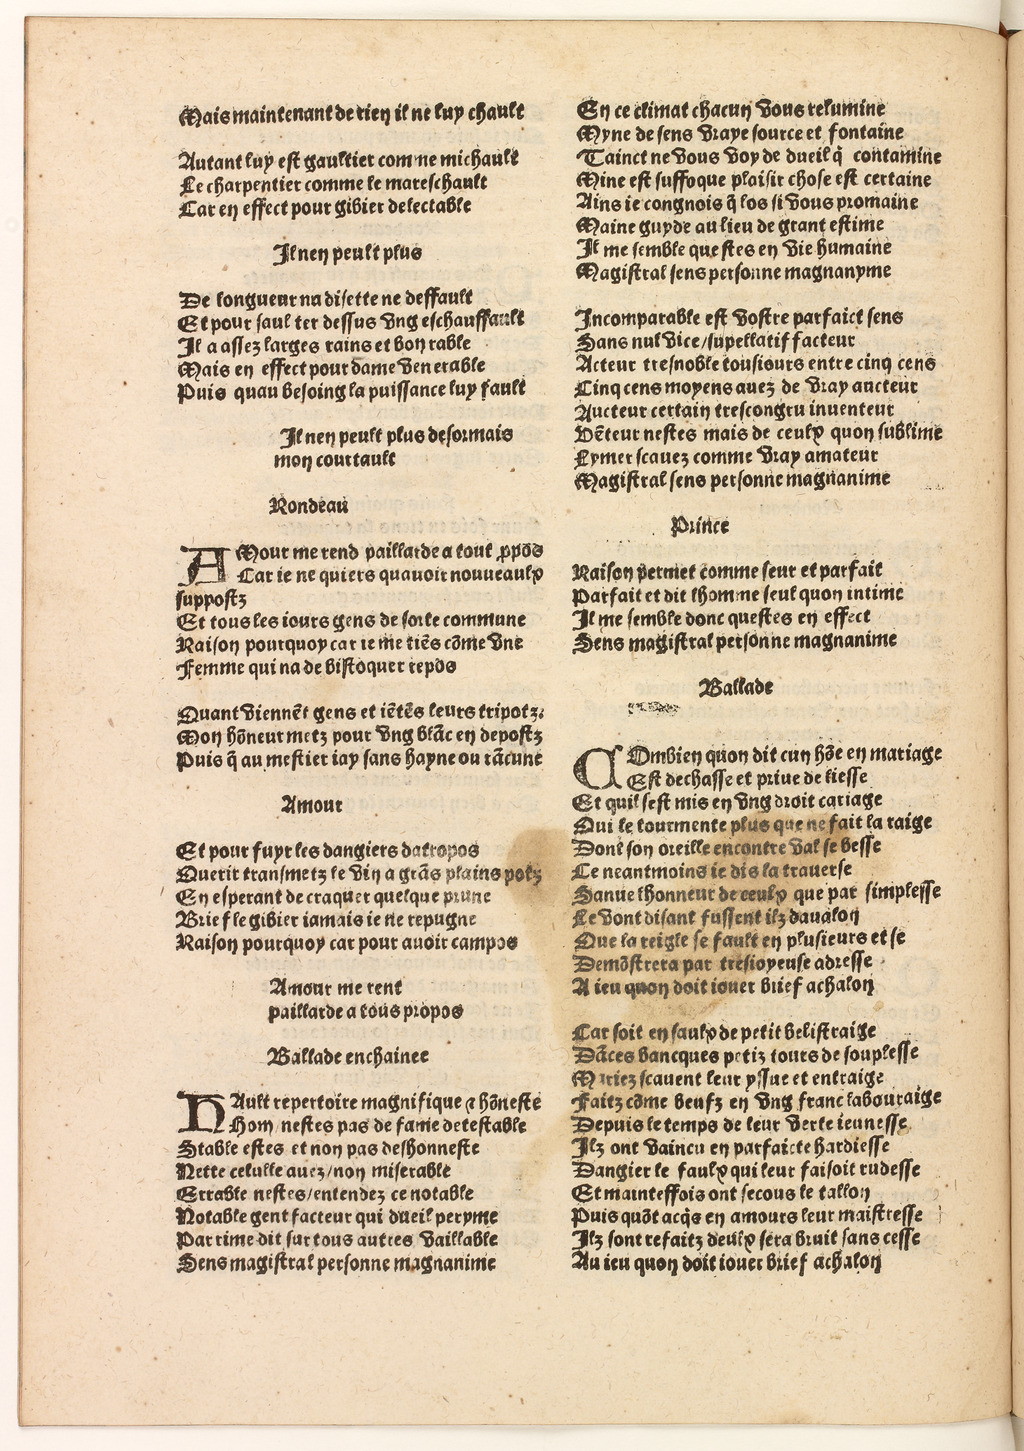 Mais maintenant de rien il ne luy chault
Autant luy est gaultier comme michault
Le charpentier comme le mareschault
Car en effect pour gibier delectable
Il nen peult plus
De longueur na disette ne deffault
Et pour saul ter dessus vng eschauffault
Il a assez larges rains et bon rable
Mais en effect pour dame venerable
Puis quau besoing la puissance luy fault
Il nen peult plus desormais
mon courtault
Rondeau
AMour me rend paillarde a tout ꝓpos
Car ie ne quiers quauoir nouueaulx
suppostz
Et tous les iours gens de sorte commune
Raison pourquoy car ie me tiẽs cõme vne
Femme qui na de bistoquer repos
Quant viennẽt gens et iẽtẽs leurs tripotz.
Mon hõneur metz pour vng blãc en depostz
Puis q̃ au mestier iay sans hayne ou rãcune
Amour
Et pour fuyr les dangiers datropos
Querir transmetz le vin a grãs plains potz
En esperant de craquer quelque prune
Brief le gibier iamais ie ne repugne
Raison pourquoy car pour auoir campos
Amour me rent
paillarde a tous propos
Ballade enchainee
HAult repertoire magnifique ⁊ hõneste
Hom nestes pas de fame detestable
Stable estes et non pas deshonneste
Nette celulle auez/non miserable
Errable nestes/entendez ce notable
Notable gent facteur qui dueil peryme
Par rime dit sur tous autres vaillable
Sens magistral personne magnanime
En ce climat chacun vous relumine
Myne de sens vraye source et fontaine
Tainct ne vous voy de dueil q̃ contamine
Mine est suffoque plaisir chose est certaine
Ains ie congnois q̃ los si vous promaine
Maine guyde au lieu de grant estime
Il me semble que stes en vie humaine
Magistral sens personne magnanyme
Incomparable est vostre parfaict sens
Sans nul vice/supellatif facteur
Acteur tresnoble tousiours entre cinq cens
Cinq cens moyens auez de vray aucteur
Aucteur certain trescongru inuenteur
Vẽteur nestes mais de ceulx quon sublime
Lymer scauez comme vray amateur
Magistral sens personne magnanime
Prince
Raison permet comme seur et parfait
Parfait et dit lhomme seul quon intime
Il me semble donc questes en effect
Sens magistral personne magnanime
Ballade
COmbien quon dit cun hõe en mariage
Est dechasse et priue de liesse
Et quil sest mis en vng droit cariage
Qui le tourmente plus que ne fait la raige
Dont son oreille encontre val se besse
Ce neantmoins ie dis la trauerse
Sanue lhonneur de ceulx que par simplesse
Le vont disant fussent ilz daualon
Que la reigle se fault en plusieurs et se
Demõstrera par tresioyeuse adresse
A ieu quon doit iouer brief achalon
Car soit en saulx de petit belistraige
Dãces bancques petiz tours de souplesse
Mariez scauent leur yssue et entraige
Faitz cõme beufz en vng franc labouraige
Depuis le temps de leur verte ieunesse
Ilz ont vaincu en parfaicte hardiesse
Dangier le faulx qui leur faisoit rudesse
Et mainteffois ont secous le tallon
Puis quõt acq̃s en amours leur maistresse
Ilz sont refaitz deulx sera bruit sans cesse
Au ieu quon doit iouer brief achalon